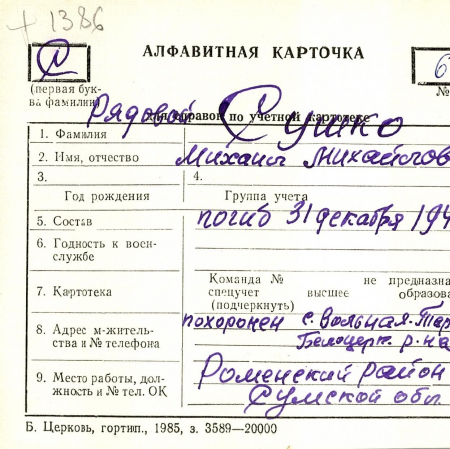 + 1386
АЛФАВИТНАЯ КАРТОЧКА
С
(первая бук-
ва фамилии)
№
Рядовой Сушко
для справок по учетной картотеке
1. Фамилия
2. Имя, отчество Михаил Михайлов
3. 4.
Год рождения Группа учета
5. Состав погиб 31 декабря 194
6. Годность к воен-
службе
7. Картотека
Команда № не предназна
спецучет высшее образова
(подчеркнуть)
8. Адрес м-житель-
ства и № телефона
похоронен с. Вольная-Тар
Белоцерк. р-на
9. Место работы, дол-
жность и № тел. ОК
Роменский район
Сумской обл
Б. Церковь, гортип., 1985, з. 3589—20000